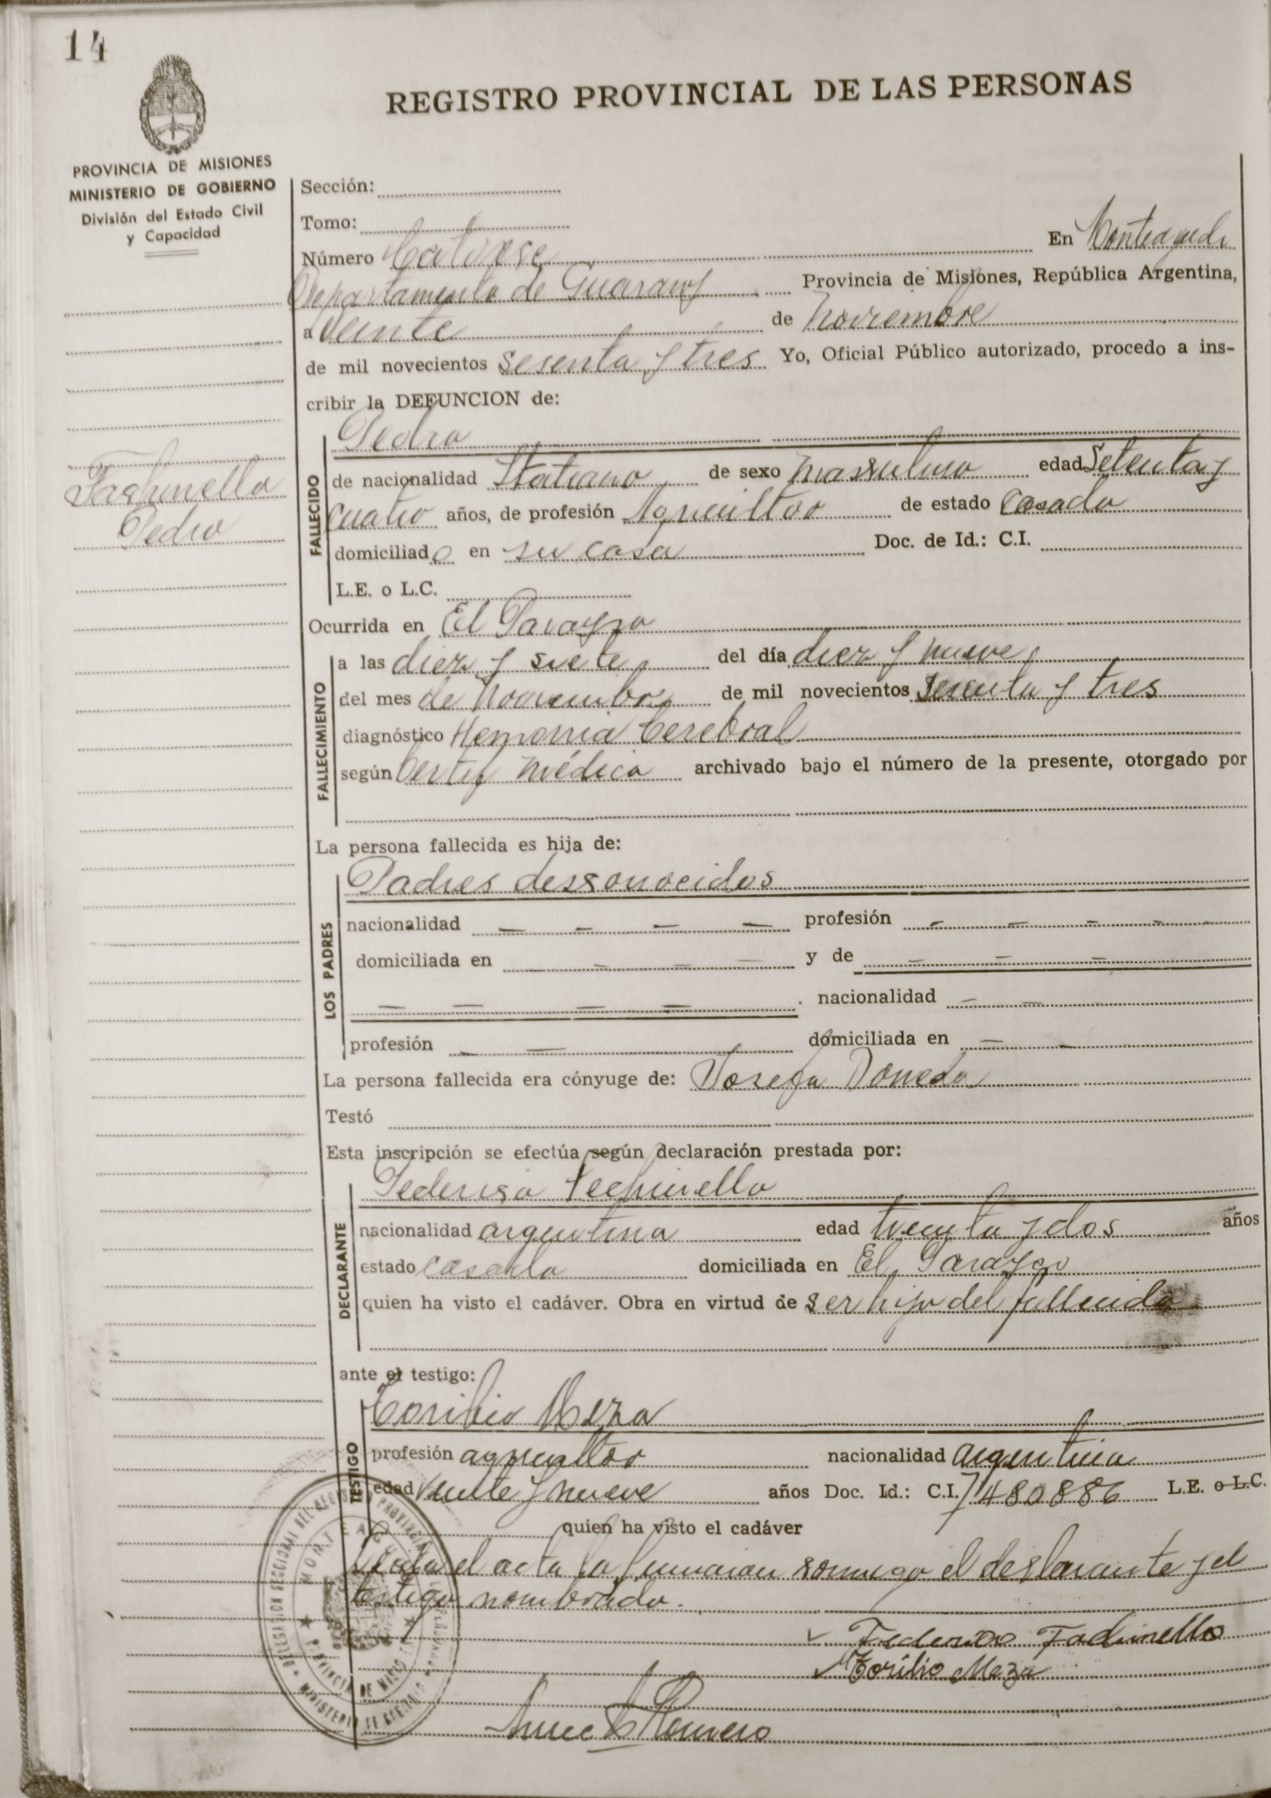 14
REGISTRO PROVINCIAL DE LAS PERSONAS
PROVINCIA DE MISIONES
MINISTERIO DE GOBIERNO
División del Estado Civil
y Capacidad
Sección:
Tomo:
Número Catorce En
Departamento de Guaraní Provincia de Misiones, República Argentina,
a Veinte de Noviembre
de mil novecientos sesenta y tres Yo, Oficial Público autorizado, procedo a ins-
cribir la DEFUNCION de:
Pedro
FALLECIDO
de nacionalidad Italiano de sexo masculino edad Setenta y
cuatro años, de profesión Agricultor de estado casado
domiciliado en su casa Doc. de Id.: C.I.
L.E. o L.C.
Pedro
Ocurrida en El Parayso
FALLECIMIENTO
a las diez y siete del día diez y nueve
del mes de Noviembre de mil novecientos sesenta y tres
diagnóstico Hemorria Cerebral
según Certif médico archivado bajo el número de la presente, otorgado por
La persona fallecida es hija de:
LOS PADRES
Padres desconocidos
nacionalidad — — — — profesión — — — —
domiciliada en — — — y de — — —
— — — — . nacionalidad — —
profesión — — domiciliada en — —
La persona fallecida era cónyuge de: Josefa
Testó
Esta inscripción se efectúa según declaración prestada por:
DECLARANTE
Federico
nacionalidad argentina edad treinta y dos años
estado casado domiciliada en El Parayso
quien ha visto el cadáver. Obra en virtud de ser hijo del fallecido
ante el testigo:
TESTIGO
Toribio Meza
profesión agricultor nacionalidad argentina
edad veinte y nueve años Doc. Id.: C.I. 7480886 L.E. o L.C.
quien ha visto el cadáver
Leída el acta la firman conmigo el declarante y el
testigo nombrado.
Federico
Toribio Meza
Romero